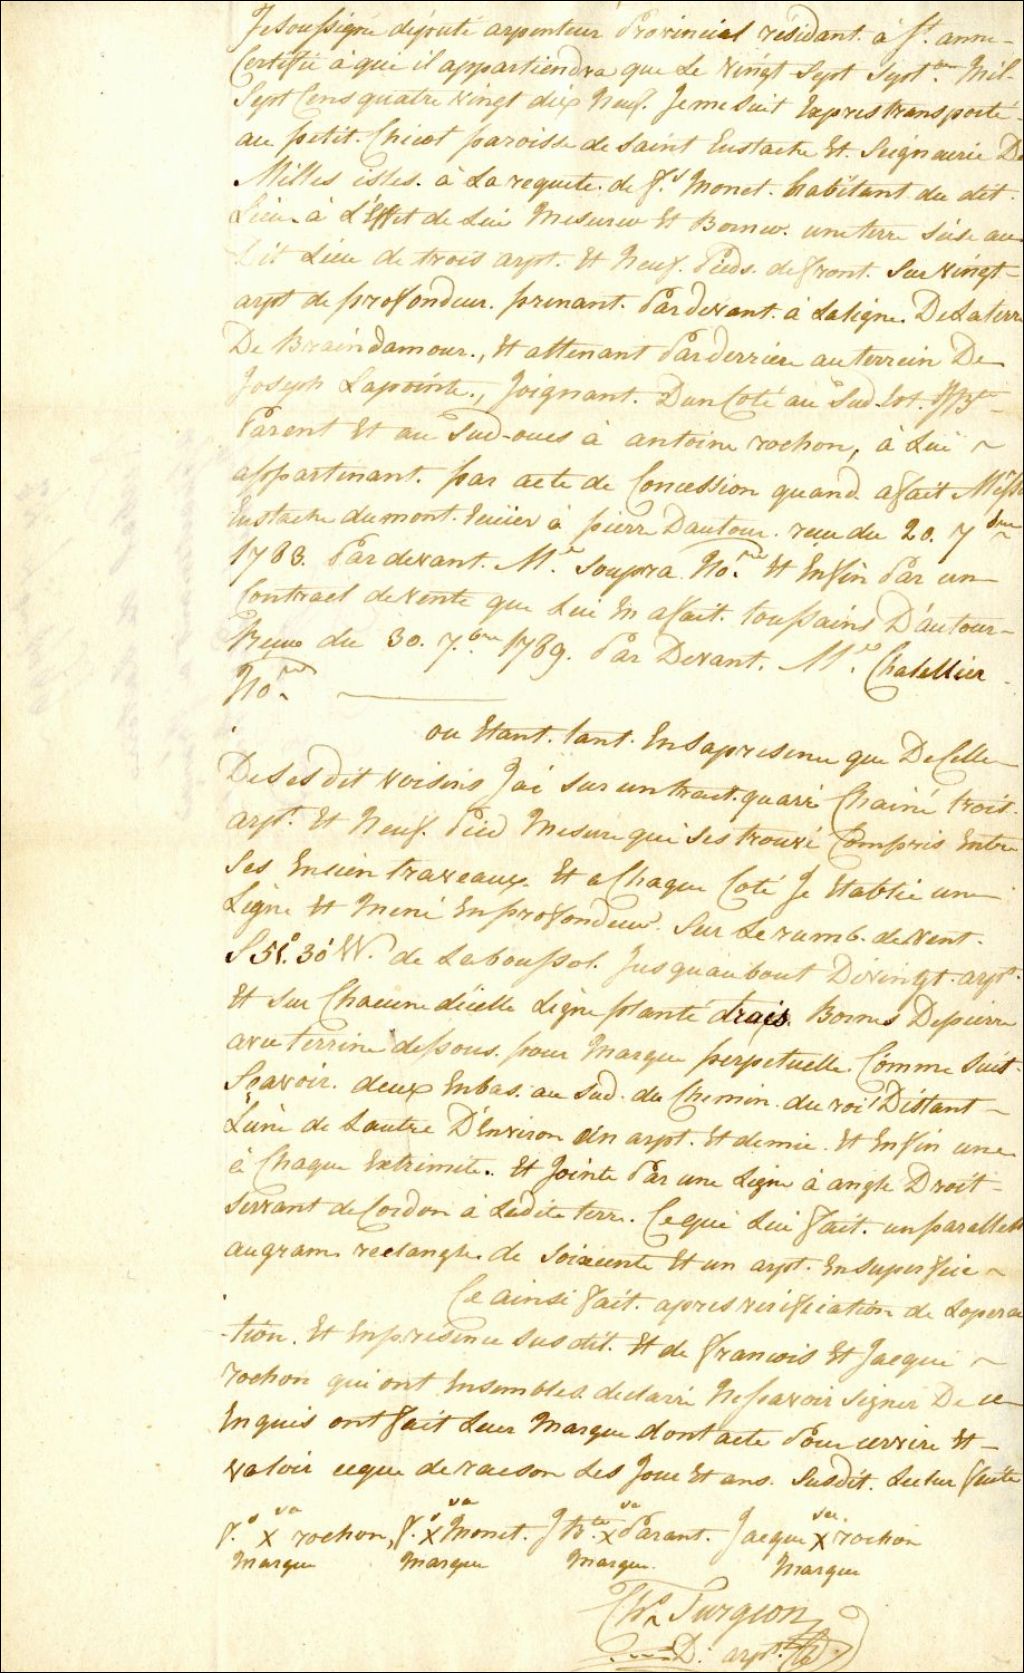 Je Soussigné député arpenteur Provincial résidant à St. anne
Certifie à qui il appartiendra que Le vingt Sept Sept.bre Mil
Sept Cens quatre vingt dix Neuf. Je me Suit Expres transporté
au petit Chicot paroisse de Saint Eustache Et Seigneurie De
Milles isles. à La requete de f.s Monet. habitant du dit
Lieu. à L'Effet de Lui Mesurer Et Borner. une terre Sise au
dit Lieu de trois arpt. Et Neuf. Pieds. de front. Sur vingt
arpt de profondeur. prenant. Par devant. à La ligne. De La terre
De Braindamour., Et attenant Par derriere au terrein De
Joseph Lapointe., Joignant. Dun Coté au Sud-Est. J Bte
Parent Et au Sud-oues à antoine rochon, à Lui
appartenant. par acte de Concession quand a fait Messr
Eustache dumont. Ecuïer à pierre Dautour. recu du 20. 7bre
1783. Par devant. Me. Soupra No.re Et Enfin Par un
Contract de vente que Lui En a fait. toussains D'autour
Recue du 30. 7.bre 1789. Par Devant. Me. Chatellier
No.re
ou Etant. tant. En Sa presence que De Celle
De Ses dit voisins J'ai Sur un trait quarré Chainé trois
arpt. Et Neuf. Pied Mesure qui S'es trouvé Compris Entre
Ses Encien traveaux. Et a Chaque Coté Je Etablie une
Ligne Et Mené En profondeur. Sur Le rumb. de Vent.
S 51.° 30' W. de La boussol. Jusquau bout De vingt arpt.
Et Sur Chacune d'icelle Ligne planté trois. Bornes De pierre
avec terrine dessous. pour Marque perpetuelle. Comme Suit
Sçavoir. deux En bas. au Sud. du Chemin. du roi Distant
L'une de L'autre D'Environ un arpt. Et demie. Et Enfin une
à Chaque Extrimite.. Et Jointe Par une Ligne à angle Droit
Servant de Cordon à Ladite terre. Ce qui Lui fait. un parallell
au grame rectangle. de Soixcente Et un arpt. En Superficie
Ce ainsi fait. apres verification de L'opera
-tion. Et En présence Sus dit. Et de francois Et Jacque
rochon qui ont Ensembles declarré Ne savoir Signer De ce
Enquis ont fait Leur Marque dont acte Pour cervire Et
valoir ceque de raeson Les Jour Et ans. Susdit. Lectur faite
f.s x rochon, f.s x Monet. J Bte. x Parant. Jacque x rochon
Marque Marque Marque. Marque
Ths Turgeon
D: arpt.